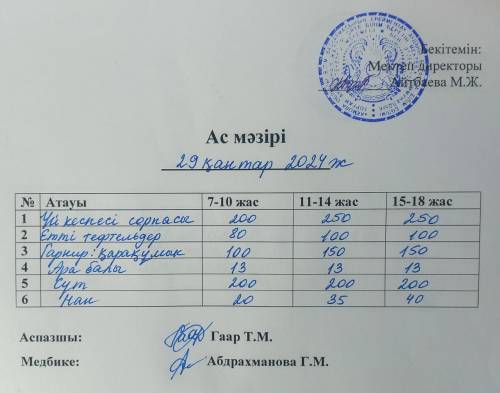 Бекітемін:
Мектеп директоры
Айтбаева М.Ж.
Ас мәзірі
29 қантар 2024 ж
№ Атауы 7-10 жас 11-14 жас 15-18 жас
1 Үй кеспесі сорпасы 200 250 250
2 Етті тефтельдер 80 100 100
3 Гарнир: қарақұмық 100 150 150
4 Ара балы 13 13 13
5 Сүт 200 200 200
6 Нан 20 35 40
Аспазшы: Гаар Т.М.
Медбике: Абдрахманова Г.М.